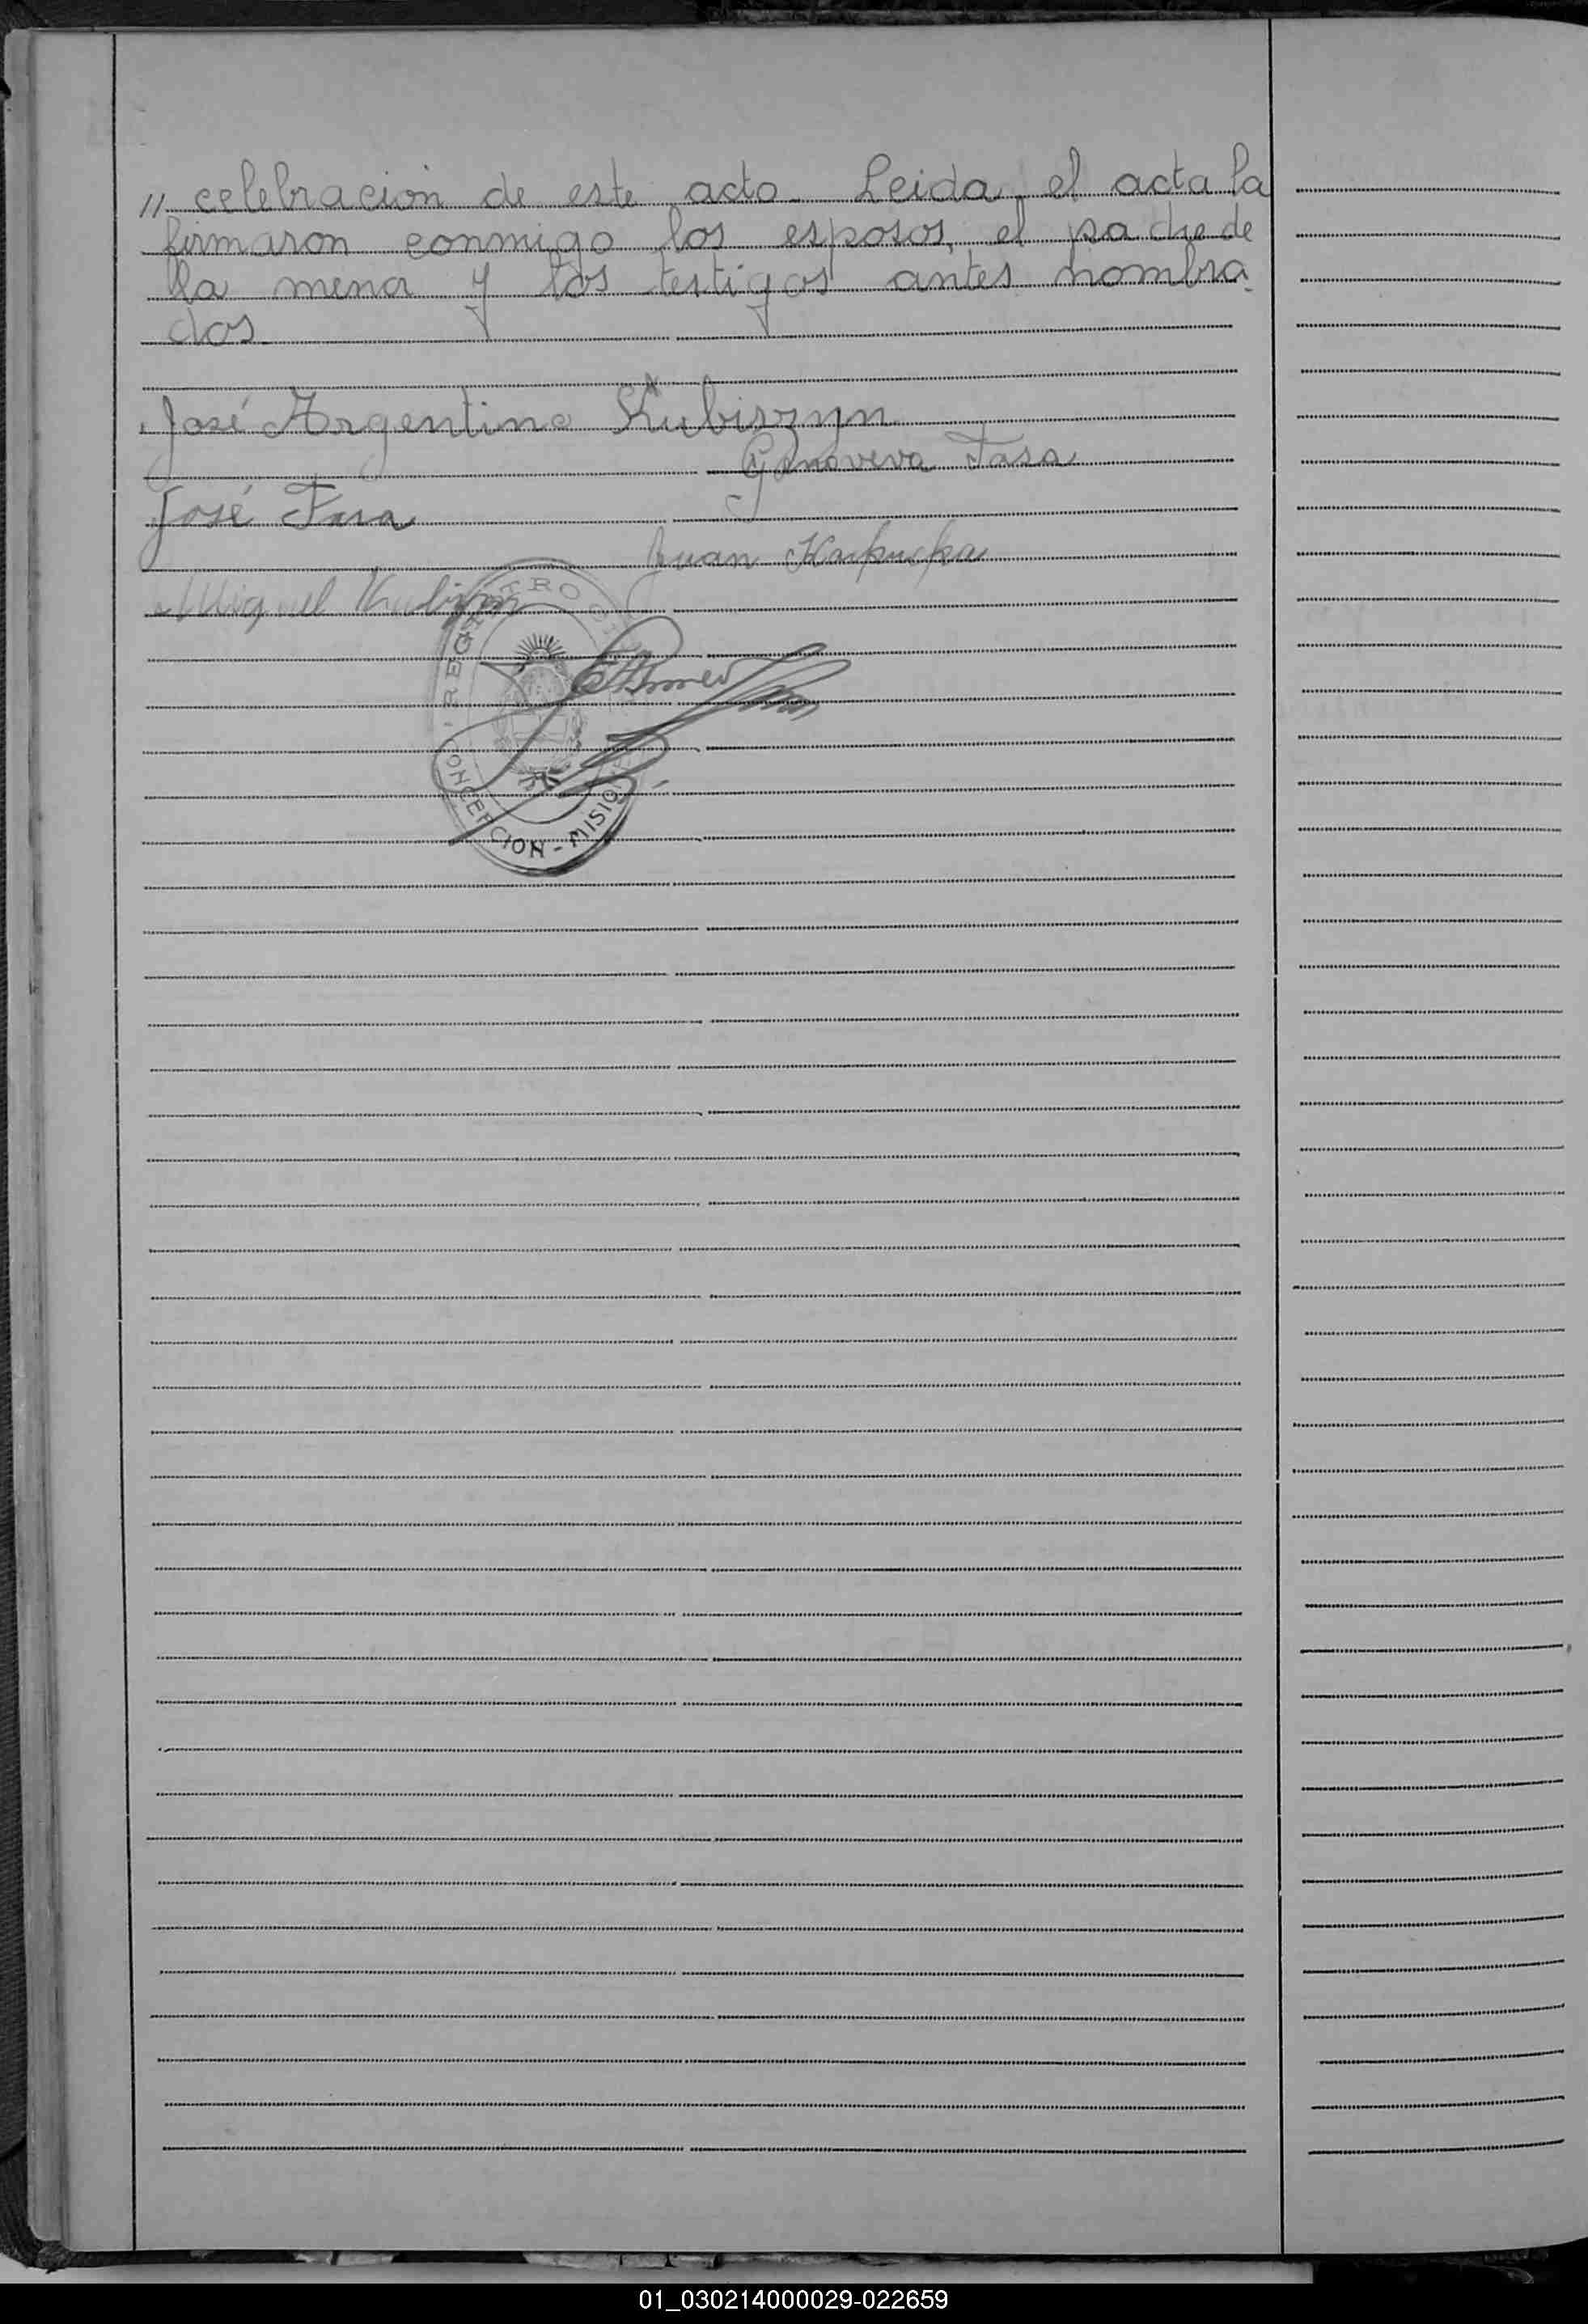 // celebración de este acto. Leida el acta la
firmaron conmigo los esposos, el padre de
la menor y los testigos antes nombra-
dos.
José Argentino Kubiszyn
Genoveva Fasa
José Fasa
Juan
Miguel
REGISTRO
CONCEPCION - MISIO
01_030214000029-022659